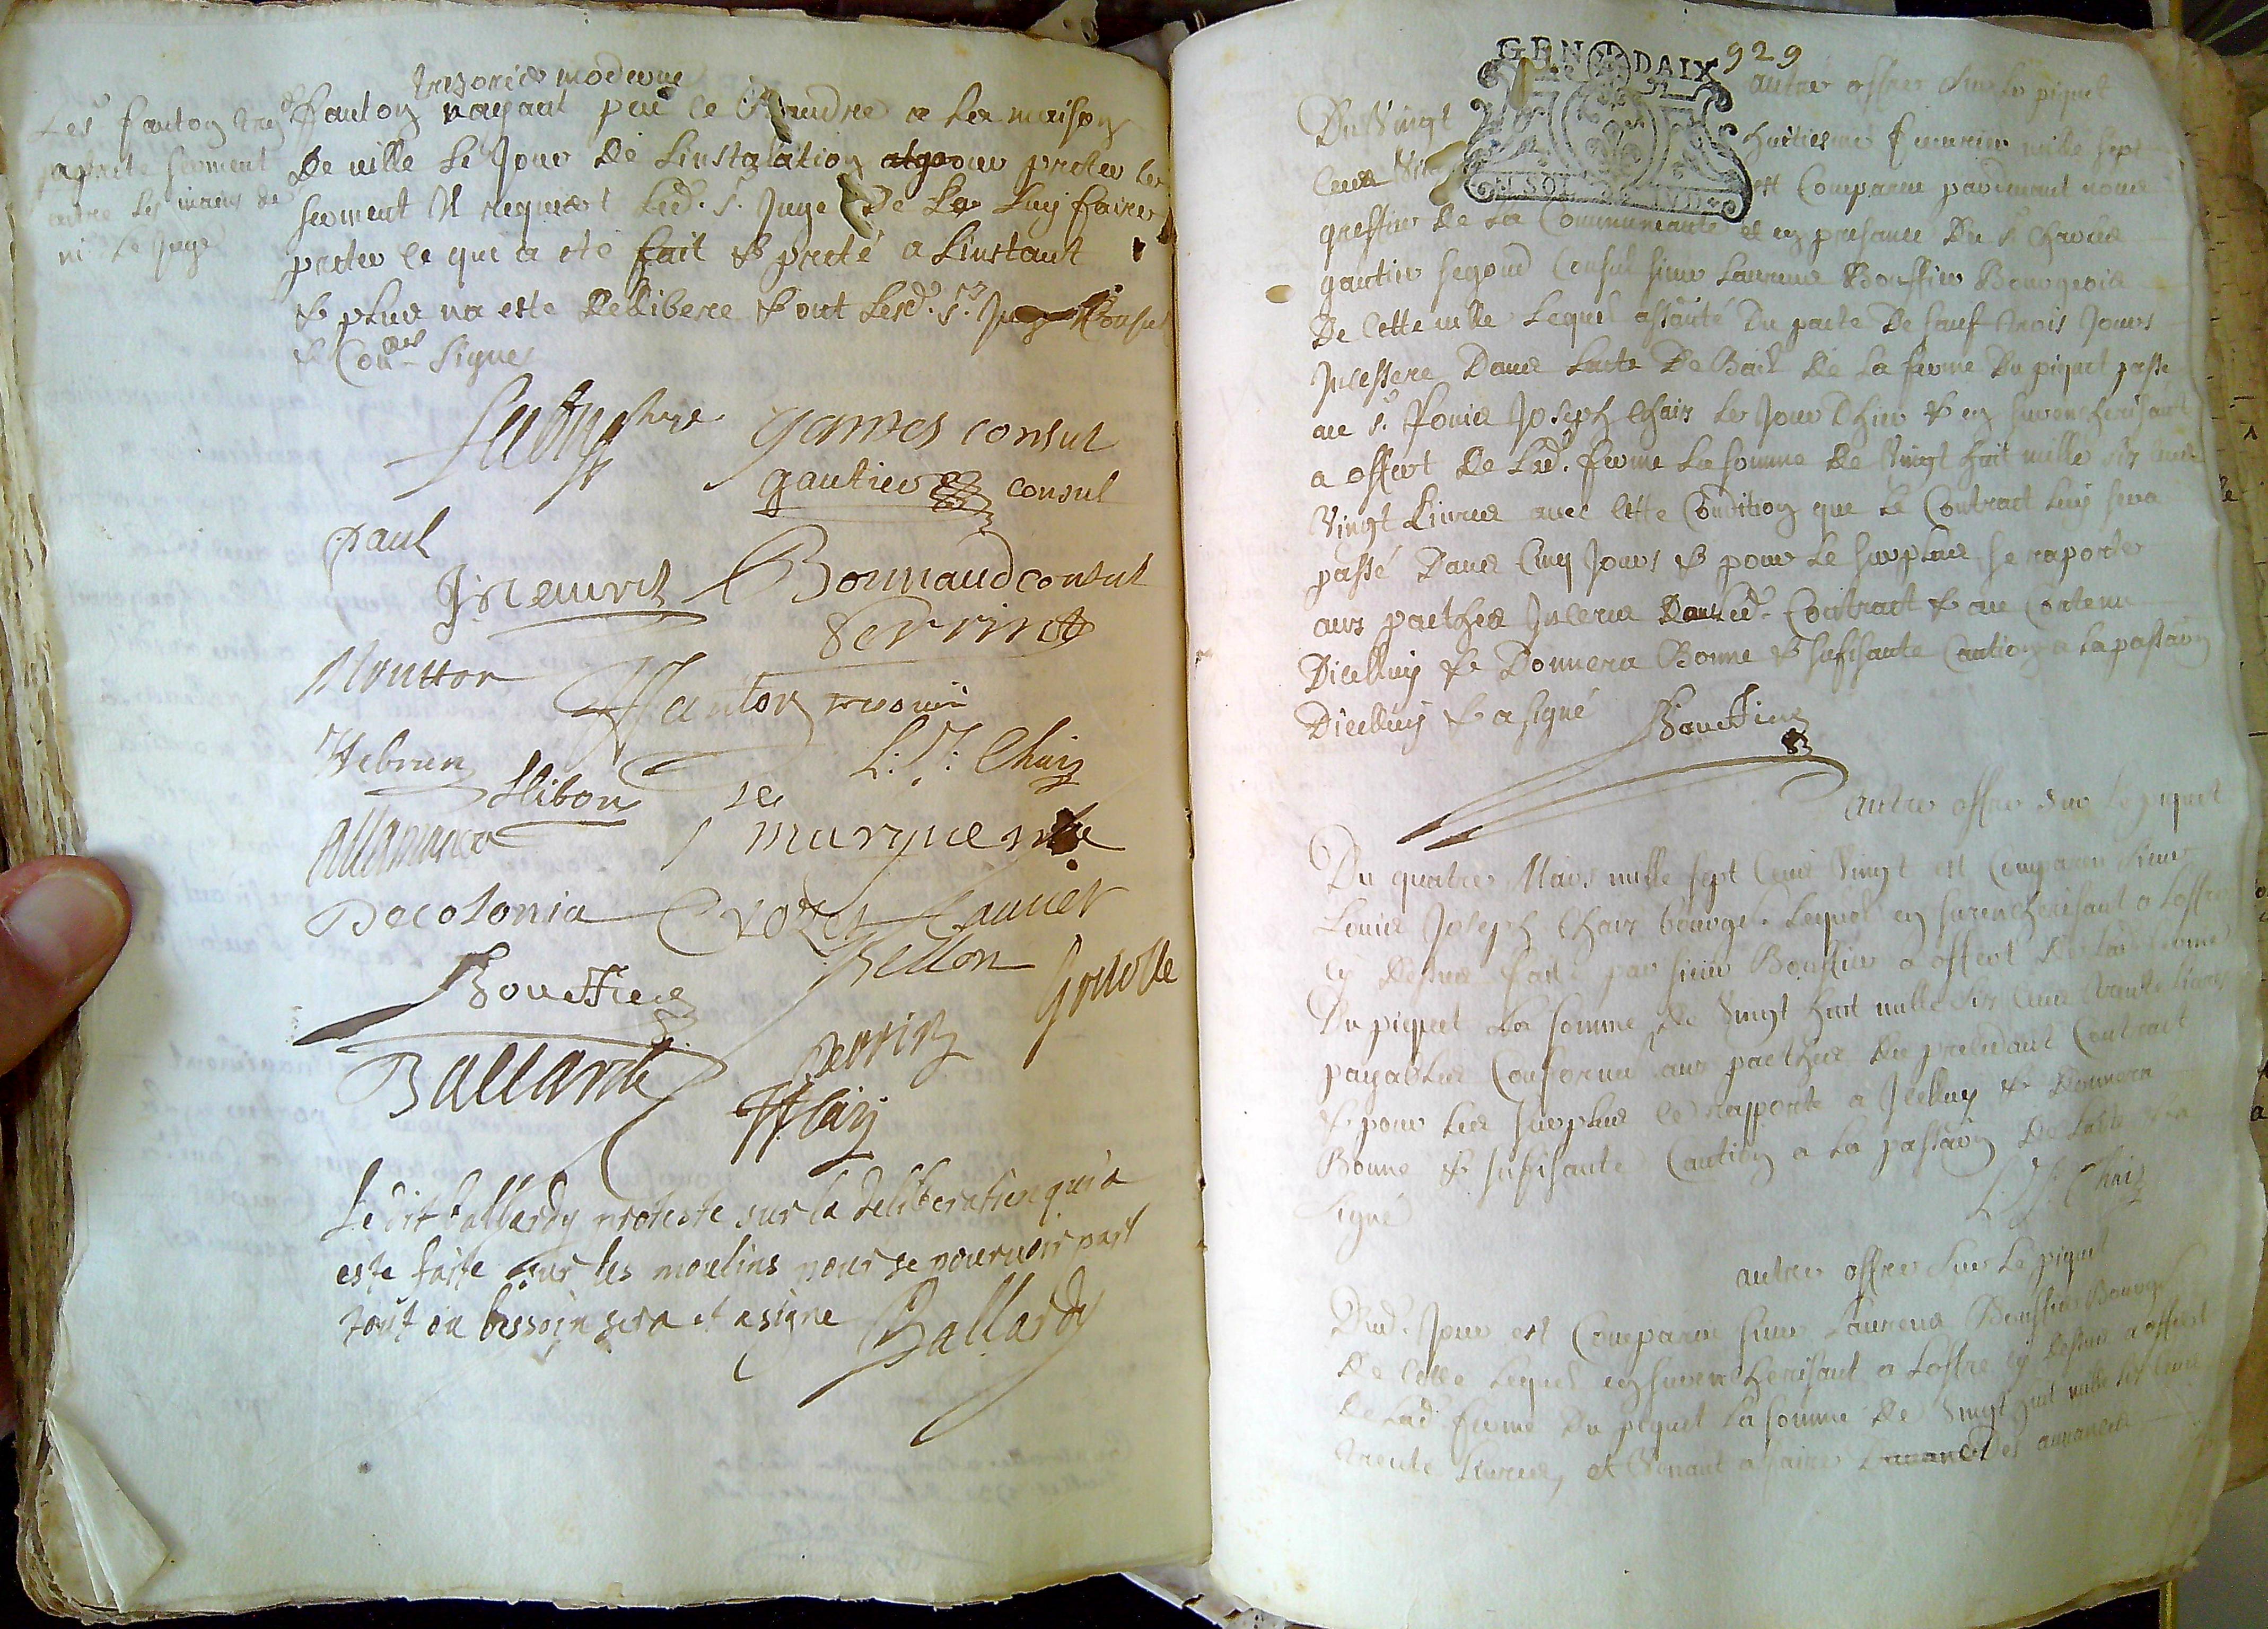 tresorier moderne
Les fanton
preste serment
entre les mains de
le juge
fanton nayant peu se randre a la maison
De ville le Jour De Linstalation pour preter le
serment Il requiert led. s. Juge De Luy faire
preter ce que a eté fait & preté a Linstant
& plus na este Dellibere & ont lesd. srs. Consuls
& Conrs. Signes
gantes consul
gautier consul
paul
Bonnaud consul
Perrin
Moutton
ffanton tresorier
Hebrun
L. J. Chaix
Stibon
marguerite
Decolonia
Crozet
Bellon
Bouffier
Ballardy
perrin
Le dit ballardy proteste sur la deliberation qui a
este faite sur les moulins pour se pourvoir part
tout ou bessoin sera et a signe Ballardy
929
GEN DAIX
autre offre sur le piquet
Du Vingt huitiesme feuvrier mille sept
cens Vingt est Comparu pardevant nous
greffier De La Communauté et en presance Du s. Charles
gautier segond Consul sieur Laurens Bouffier Bourgeois
De cette ville Lequel assauté Du pacte De sauf trois Jours
Incessere Dans Lacte De Bail De La ferme Du piquet passé
au s. Louis Joseph Chaix le Jour Dhier & en surencherisant
a offert De Lad. ferme La somme De Vingt huit mille six cens
Vingt Livres avec cette Condition que Le Contract Luy sera
passé Dans Cinq Jours & pour Le surplus se raporter
aux pacthes Inceres Dans led. Contract & au Contenu
Dicelluy & Donnera Bonne & sufisante Caution a La passaon
Dicelluy & a signé Bouffier
autre offre sur Le piquet
Du quatre Mars mille sept Cens Vingt est Comparu sieur
Louis Joseph Chaix bourgs. Lequel en surencherisant a Loffre
cy Dessus fait par sieur Bouffier a offert De Lad ferme
Du piquet La somme De Vingt huit mille six Cens trente Livres
payables Conforme aux pacthes Du precedant Contract
& pour Les surplus ce rapporte a Icelluy & Donnera
Bonne & sufisante Caution a La passaon De Lacte & a
signé L. J. Chaix
autre offre sur Le piquet
Dud. Jour est Comparu sieur Laurens Bouffier Bourgs
De cette Lequel en surencherisant a Loffre cy Dessus a offert
De Lad. ferme Du piquet La somme De Vingt huit mille six Cens
trente Livres, et Venant a faire Des avances